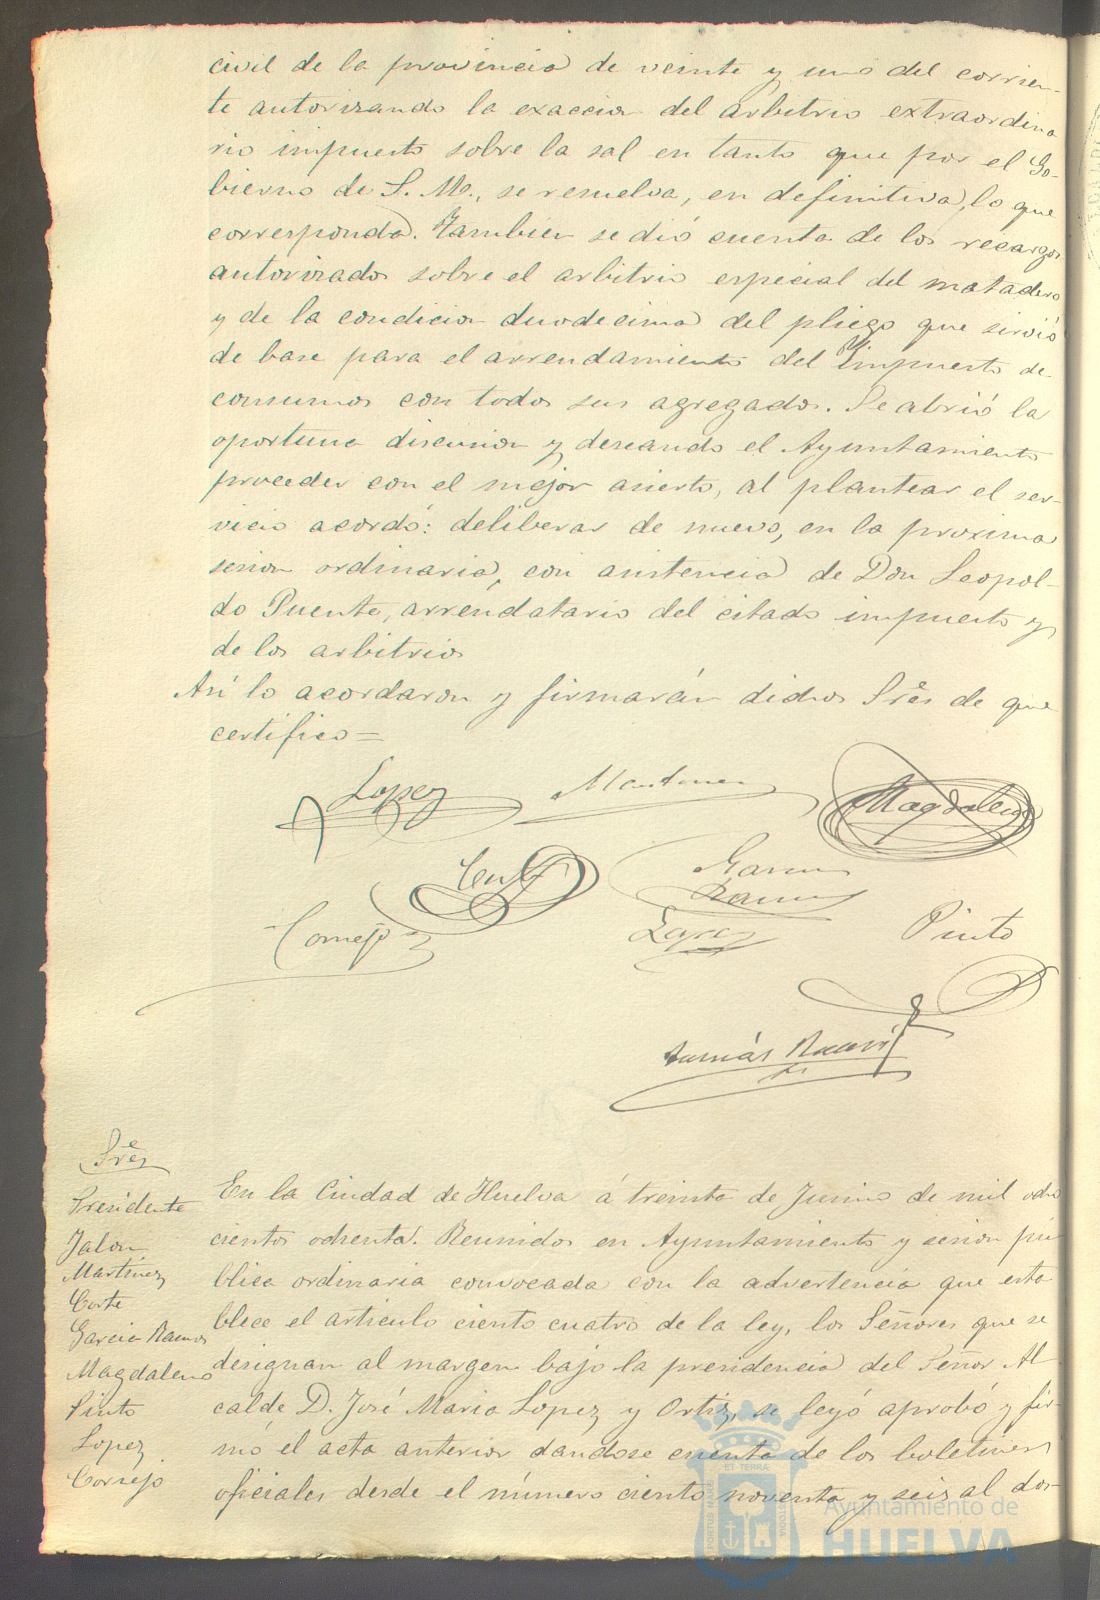 civil de la provincia de veinte y uno del corrien-
te autorizando la exaccion del arbitrio extraordina
rio impuesto sobre la sal en tanto que por el Go-
bierno de S. M., se resuelva, en definitiva, lo que
corresponda. Tambien se dió cuenta de los recargos
autorizados sobre el arbitrio especial del matadero
y de la condicion duodecima del pliego que sirvió
de base para el arrendamiento del Impuesto de
consumos con todos sus agregados. Se abrió la
oportuna discusion y deseando el Ayuntamiento
proceder con el mejor acierto, al plantear el ser-
vicio acordó: deliberar de nuevo, en la proxima
sesion ordinaria, con asistencia de Don Leopol-
do Puente, arrendatario del citado impuesto y
de los arbitrios
Así lo acordaron y firmarán dichos Sres de que
certifico=
Lopez Martinez Magdaleno
Corte Garcia
Ramos
Cornejo Lopez Pinto
Tomás
Sres
Presidente
Jalon
Martinez
Corte
Garcia Ramos
Magdaleno
Pinto
Lopez
Cornejo
En la Ciudad de Huelva á treinta de Junio de mil ocho
cientos ochenta. Reunidos en Ayuntamiento y sesion pú
blica ordinaria convocada con la advertencia que esta
blece el articulo ciento cuatro de la ley, los Señores que se
designan al margen bajo la presidencia del Señor Al
calde D. José Maria Lopez y Ortiz, se leyó aprobó y fir-
mó el acta anterior dandose cuenta de los boletines
oficiales desde el número ciento noventa y seis al dos-
ET TERRÆ
PORTUS MARIS
CUSTODIA
Ayuntamiento de
HUELVA